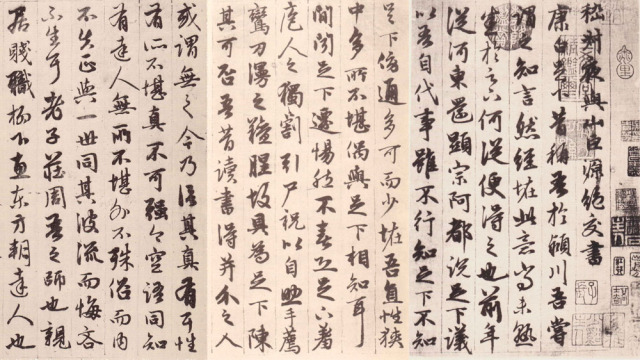 嵇叔夜與山巨源絕交書
康白足下昔稱吾於潁川吾嘗
謂之知言然經怪此意尚未熟
悉於足下何從便得之也前年
從河東還顯宗阿都說足下議
以吾自代事雖不行知足下不知
足下傍通多可而少怪吾直性狹
中多所不堪偶與足下相知耳
間聞足下遷惕然不喜恐足下羞
庖人之獨割引尸祝以自助手薦
鸞刀漫之羶腥故具為足下陳
其可否吾昔讀書得并介之人
或謂無之今乃信其真有耳性
有所不堪真不可強今空語同知
有達人無所不堪外不殊俗而內
不失正與一世同其波流而悔吝
不生耳老子莊周吾之師也親
居賤職柳下惠東方朔達人也